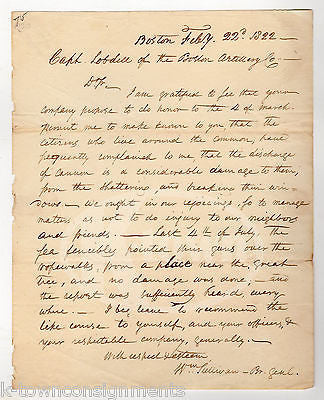 Boston Feb.y. 22d. 1822
Capt Lobdell of the Boston Artillery Co.
D Sr.
I am gratified to see that your
company propose to do honor to the 4 of march
Permit me to make known to you, that the
citizens who live around the common, have
frequently complained to me that the discharge
of cannon is a considerable damage to them,
from the shattering, and breaking their win-
dows. — We ought in our rejoicings, so to manage
matters as not to do injury to our neighbors
and friends. — Last 4th of July, the
sea fencibles pointed their guns over the
ropewalks, from a place near the great
tree, and no damage was done, — and
the report was sufficiently heard, every
where. — I beg leave to recommend the
like course to yourself, and your officers, &
your respectable company, generally. —
With respect & esteem
Wm. Sullivan — Br. Genl.
k-townconsignments